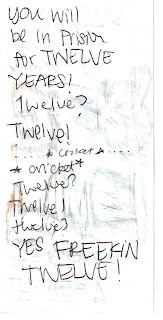 you will
be in Prison
for TWELVE
YEARS!
Twelve?
Twelve!
.... * cricket * ....
* cricket *
Twelve?
Twelve!
twelve?
YES FREEKIN
TWELVE!